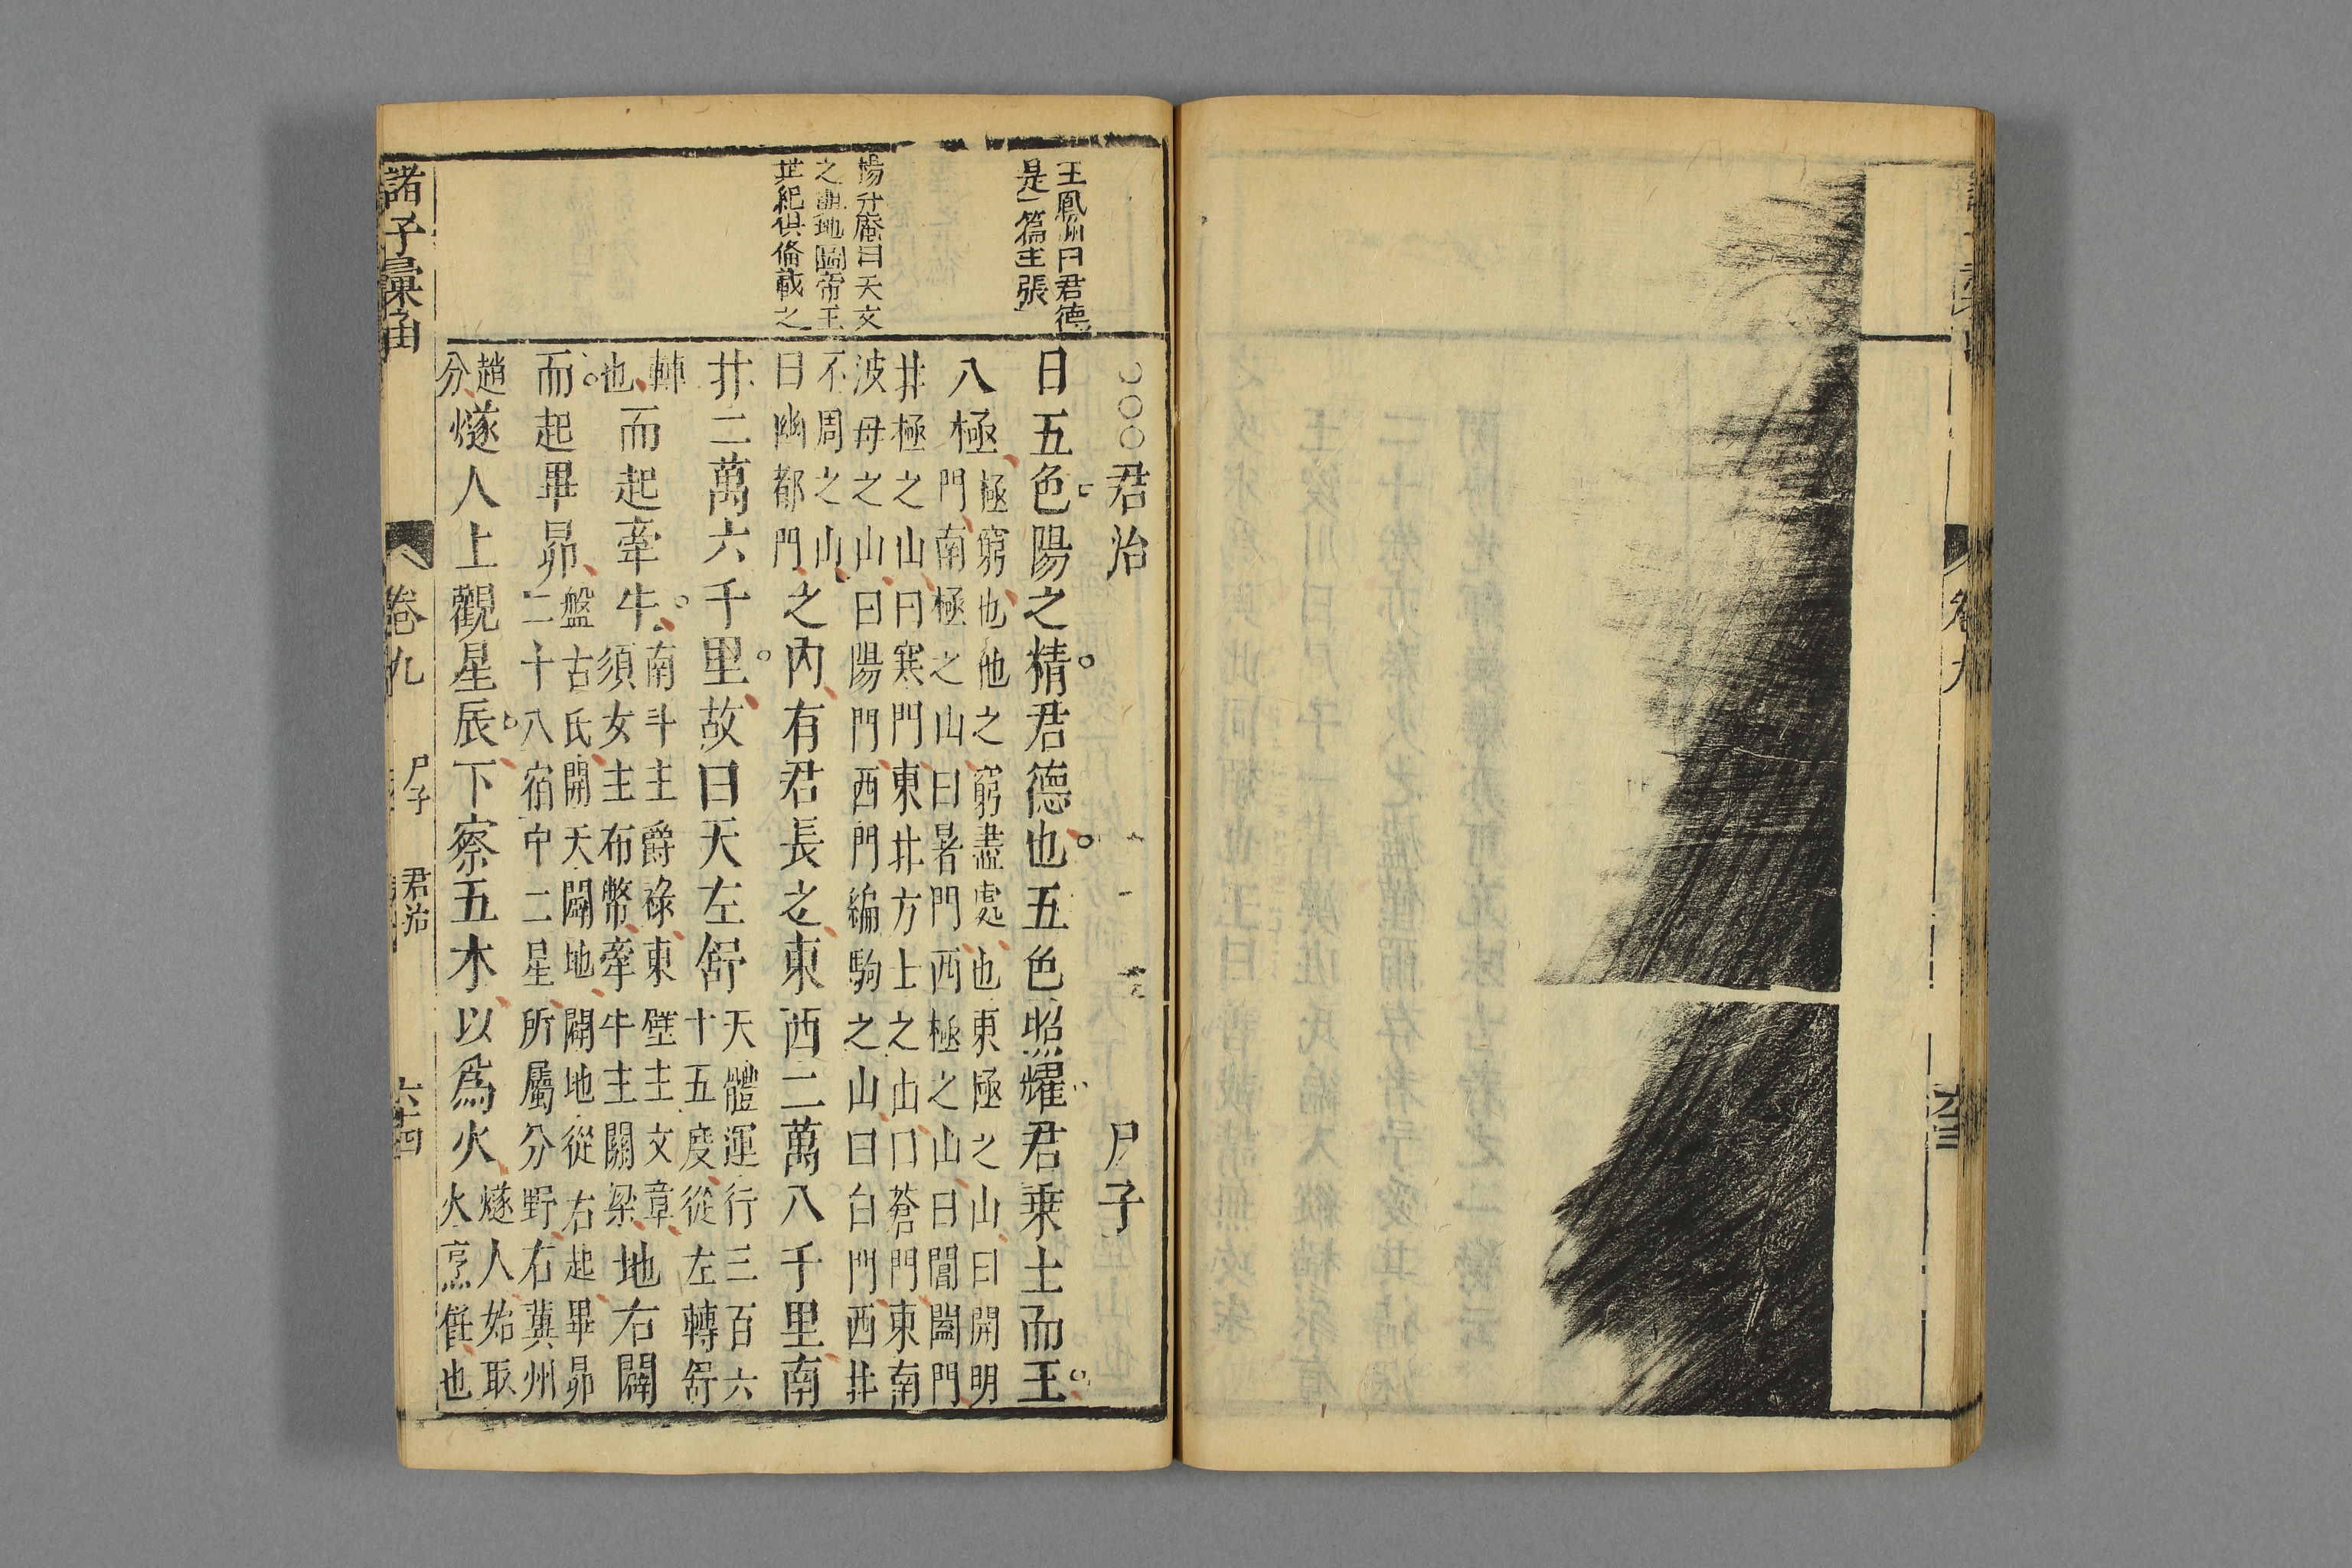 卷九
君治　尸子
日五色陽之精君德也五色照耀君乗土而王
八極極窮也他之窮盡處也東極之山曰開明
門南極之山曰暑門西極之山曰閶闔門
北極之山曰寒門東北方土之山曰蒼門東南
波母之山曰陽門西門編駒之山曰白門西北
不周之山
曰幽都門之内有君長之東西二萬八千里南
北二萬六千里故曰天左舒天體運行三百六
十五度從左轉舒
轉也而起牽牛南斗主爵祿東壁主文章
須女主布幣牽牛主關梁地右闢
而起畢昴盤古氏開天闢地闢地從右起畢昴
二十八宿中二星所屬分野右冀州
趙分燧人上觀星辰下察五木以為火燧人始取
火烹飪也
王鳳州曰君德
是一篇主張
楊升庵曰天文
之調地圖帝王
世紀俱備載之
諸子彙函
卷九
尸子
君治
六十四